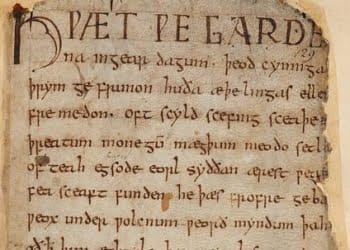 HǷÆT ǷE GARDE
na ingear dagum. þeod cyninga
þrym ge frunon huða æþelingas elle
fre medon. oft scyld scefing sceaþe
þreatum monegū mægþum meodo setla
of teah egsode eorl syððan ærest ƿear
fea sceaft funden he þæs frofre geba
ƿeox under ƿolcnum ƿeorð myndum þah
him